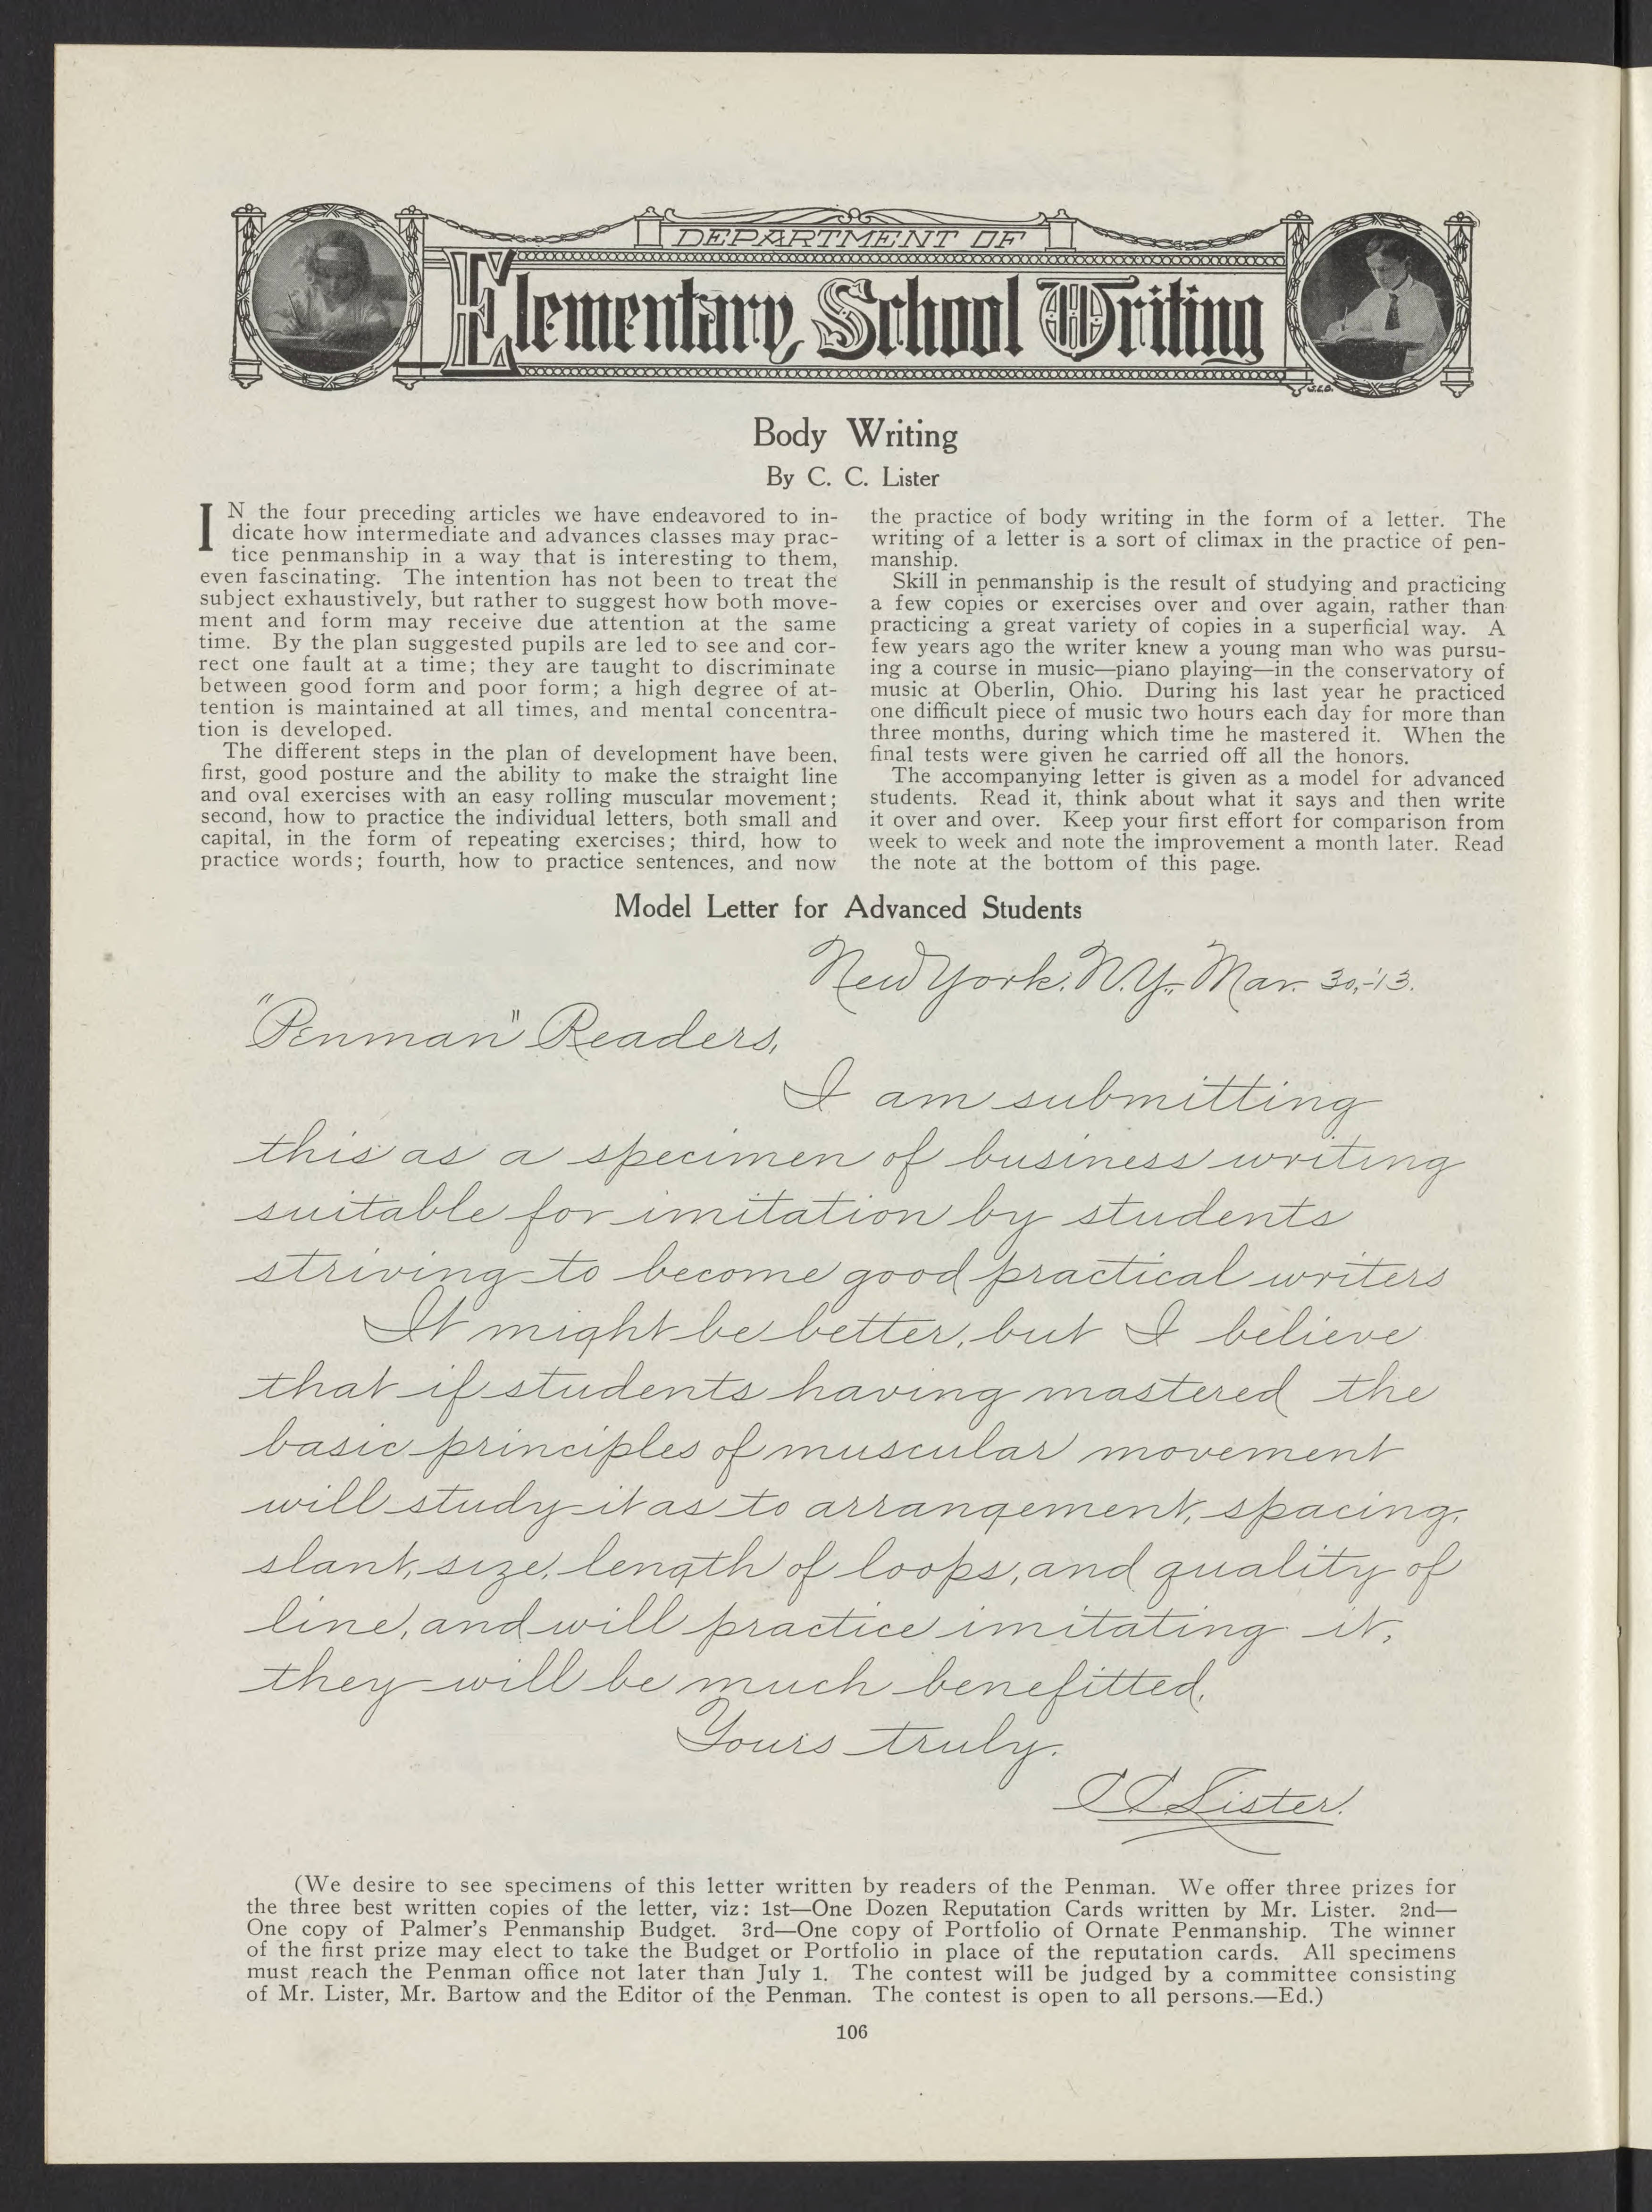 DEPARTMENT OF
Elementary School Writing
S.E.B.
Body Writing
By C. C. Lister
IN the four preceding articles we have endeavored to in-
dicate how intermediate and advances classes may prac-
tice penmanship in a way that is interesting to them,
even fascinating. The intention has not been to treat the
subject exhaustively, but rather to suggest how both move-
ment and form may receive due attention at the same
time. By the plan suggested pupils are led to see and cor-
rect one fault at a time; they are taught to discriminate
between good form and poor form; a high degree of at-
tention is maintained at all times, and mental concentra-
tion is developed.
The different steps in the plan of development have been,
first, good posture and the ability to make the straight line
and oval exercises with an easy rolling muscular movement;
second, how to practice the individual letters, both small and
capital, in the form of repeating exercises; third, how to
practice words; fourth, how to practice sentences, and now
the practice of body writing in the form of a letter. The
writing of a letter is a sort of climax in the practice of pen-
manship.
Skill in penmanship is the result of studying and practicing
a few copies or exercises over and over again, rather than
practicing a great variety of copies in a superficial way. A
few years ago the writer knew a young man who was pursu-
ing a course in music—piano playing—in the conservatory of
music at Oberlin, Ohio. During his last year he practiced
one difficult piece of music two hours each day for more than
three months, during which time he mastered it. When the
final tests were given he carried off all the honors.
The accompanying letter is given as a model for advanced
students. Read it, think about what it says and then write
it over and over. Keep your first effort for comparison from
week to week and note the improvement a month later. Read
the note at the bottom of this page.
Model Letter for Advanced Students
New York, N.Y., Mar. 30,-'13.
"Penman" Readers,
I am submitting
this as a specimen of business writing
suitable for imitation by students
striving to become good practical writers
It might be better, but I believe
that if students having mastered the
basic principles of muscular movement
will study it as to arrangement, spacing,
slant, size, length of loops, and quality of
line, and will practice imitating it,
they will be much benefitted.
Yours truly.
C C Lister.
(We desire to see specimens of this letter written by readers of the Penman. We offer three prizes for
the three best written copies of the letter, viz: 1st—One Dozen Reputation Cards written by Mr. Lister. 2nd—
One copy of Palmer's Penmanship Budget. 3rd—One copy of Portfolio of Ornate Penmanship. The winner
of the first prize may elect to take the Budget or Portfolio in place of the reputation cards. All specimens
must reach the Penman office not later than July 1. The contest will be judged by a committee consisting
of Mr. Lister, Mr. Bartow and the Editor of the Penman. The contest is open to all persons.—Ed.)
106